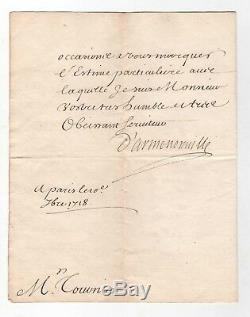 occasion de vous marquer
l'Estime particuliere avec
laquelle Je suis Monsieur
Vostre tres humble et tres
Obeissant Serviteur
D'armenonville
A paris le
1718
Mr